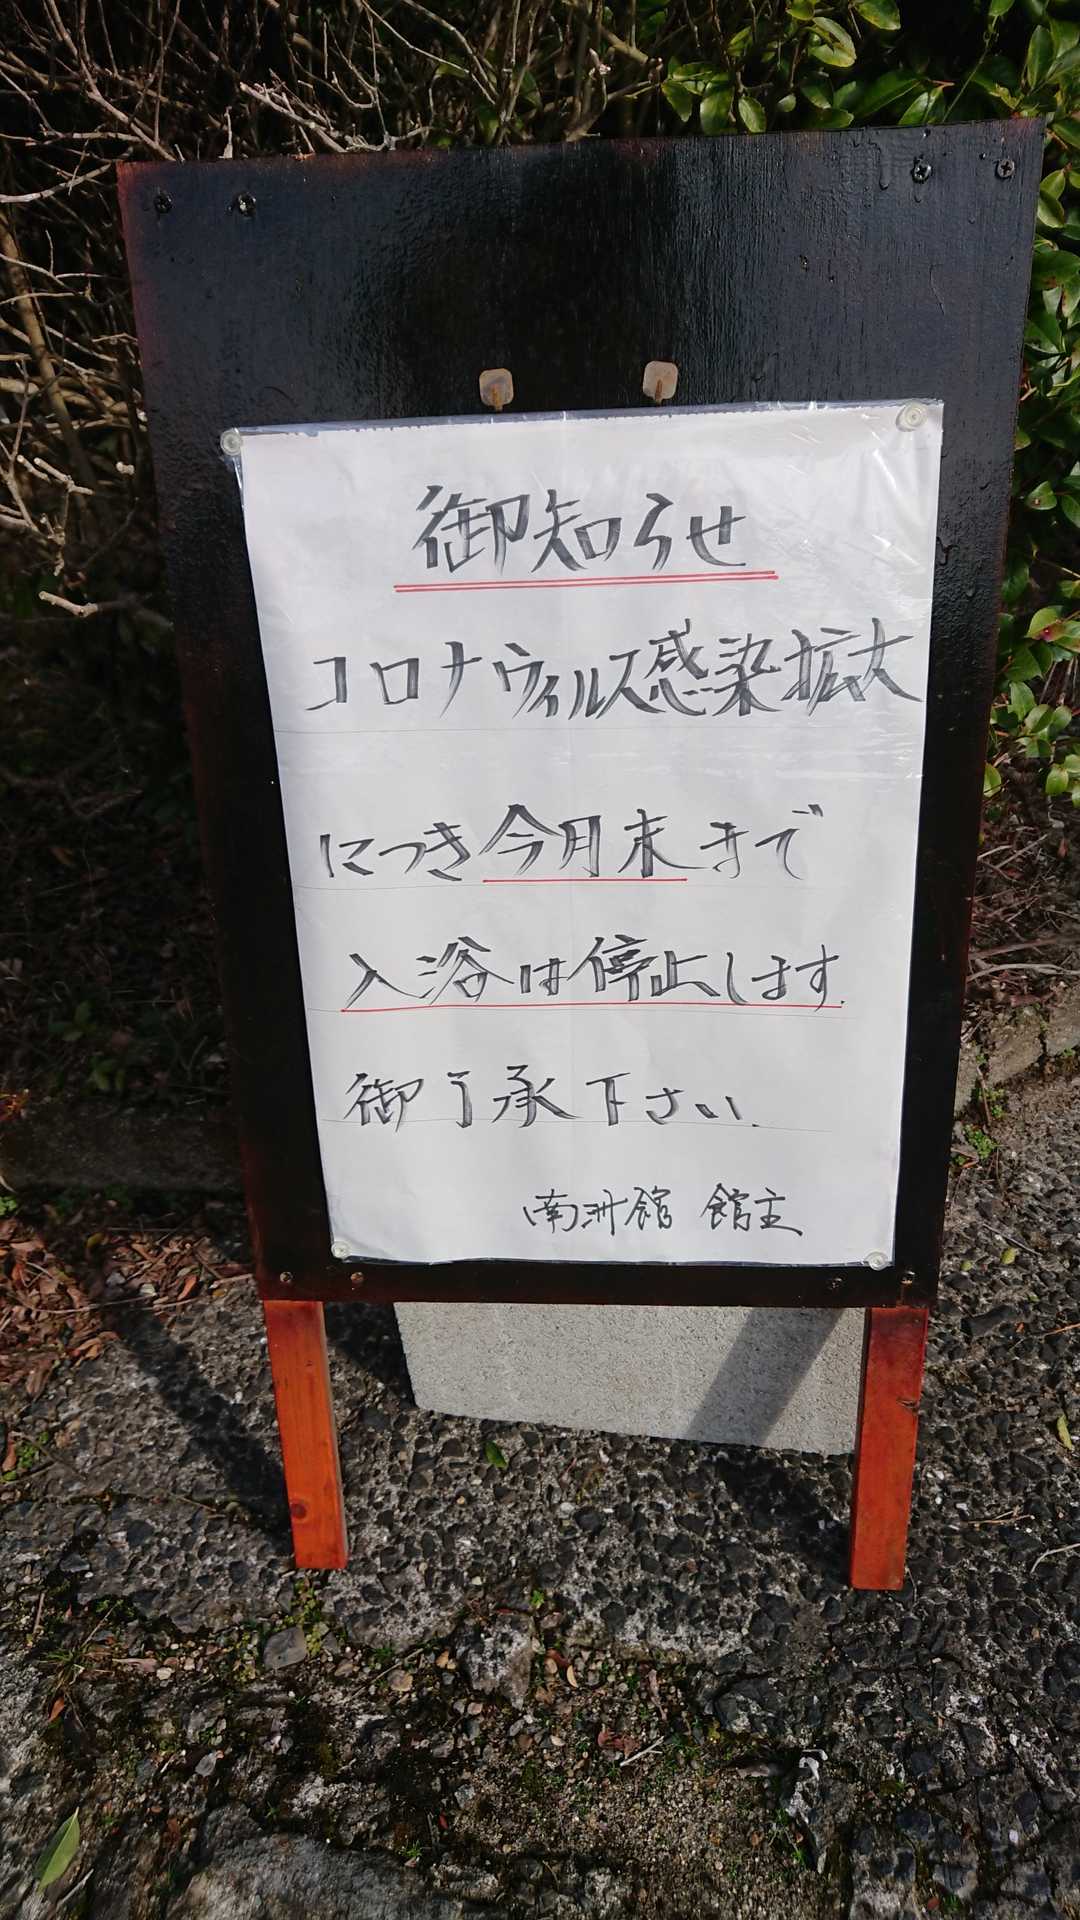 御知らせ
コロナウィルス感染拡大
につき今月末まで
入浴は停止します.
御了承下さい.
南洲館 館主